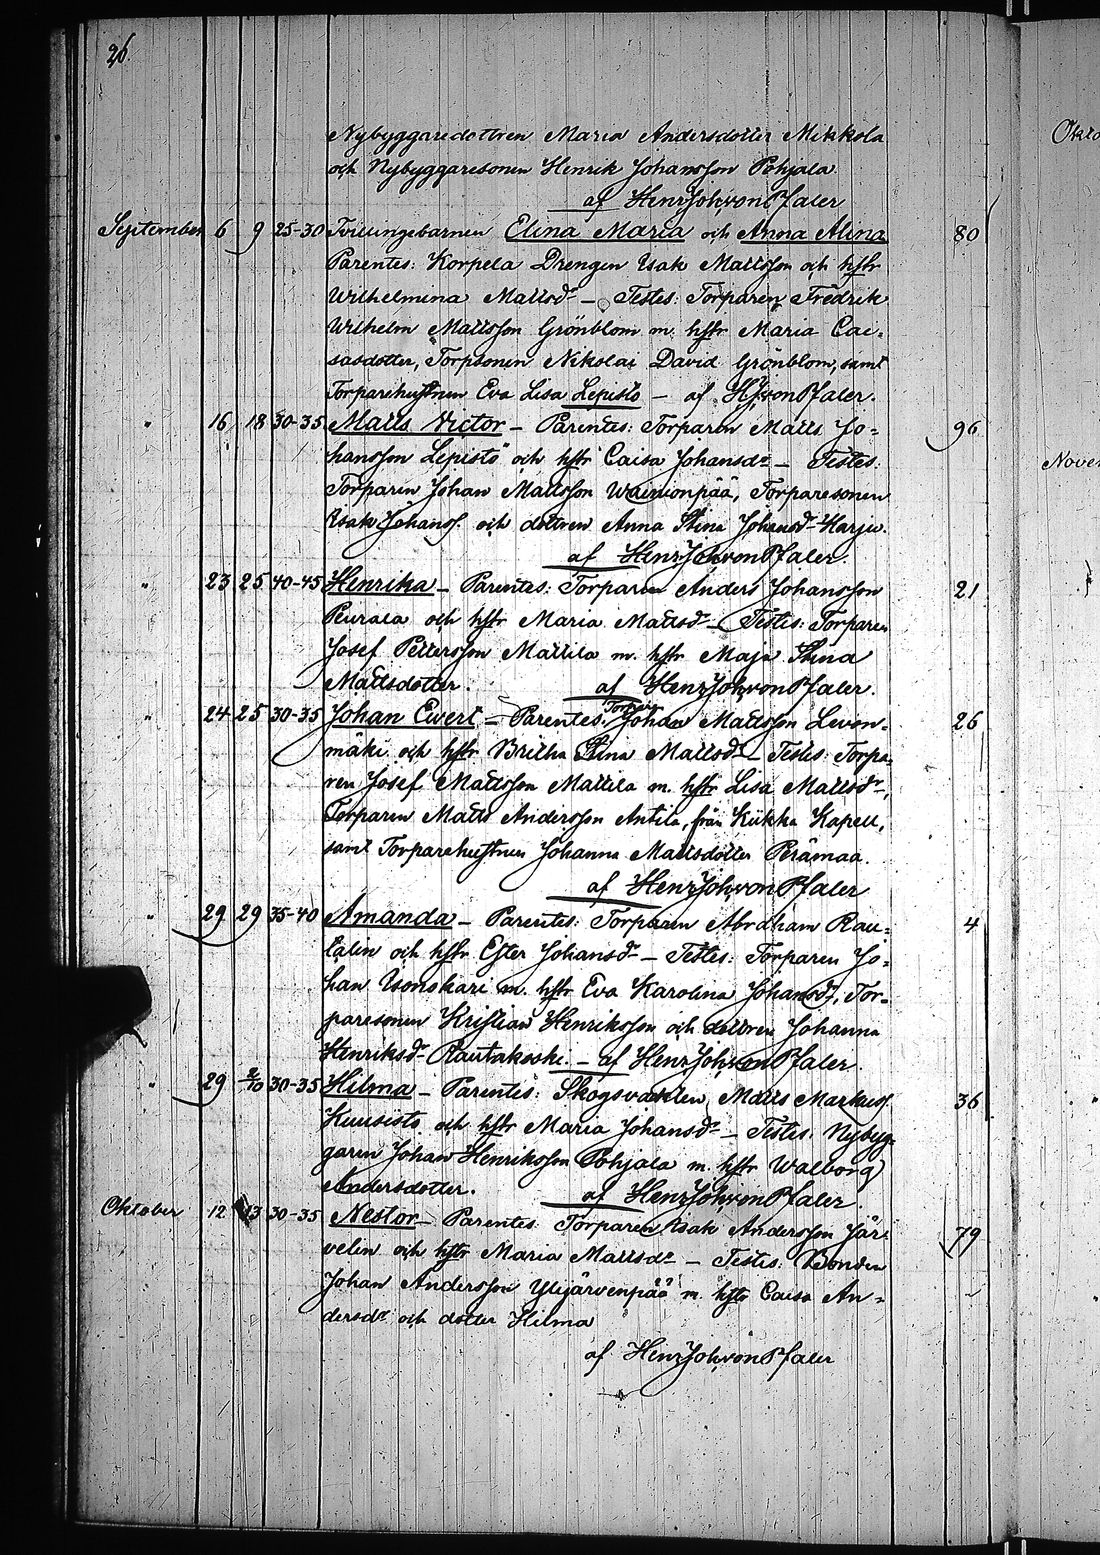 26.
Nybyggaredottren Maria Andersdotter Mikkola
och Nybyggaresonen Henrik Johansson Pohjala
af HenrJohvonPfaler
September 6 9 25-30 Tvillingebarnen Elina Maria och Anna Alina 80
Parentes: Korpela Drengen Isak Mattsson och hstr
Wilhelmina Mattsdr – Testes: Torparen Fredrik
Wilhelm Mattsson Grönblom m. hstr Maria Cai-
sasdotter, Torpsonen Nikolai David Grönblom, samt
Torparehustrun Eva Lisa Lepistö – af HJvonPfaler.
" 16 18 30-35 Matts Victor – Parentes: Torparen Matts Jo- 96
hansson Lepistö och hstr Caisa Johansdr – Testes:
Torparen Johan Mattsson Wainionpää, Torparesonen
Isak Johanss. och dottren Anna Stina Johansdr Harju.
af HenrJohvonPfaler.
" 23 25 40-45 Henrika – Parentes: Torparen Anders Johansson 21
Peurala och hstr Maria Mattsdr – Testes: Torparen
Josef Pettersson Mattila m. hstr Maja Stina
Mattsdotter. af HenrJohvonPfaler.
" 24 25 30-35 Johan Evert – Parentes: Torparen Johan Mattsson Levon- 26
mäki och hstr Britha Stina Mattsdr – Testes: Torpa-
ren Josef Mattsson Mattila m. hstr Lisa Mattsdr,
Torparen Matts Andersson Antila, från Kiikka Kapell,
samt Torparehustrun Johanna Mattsdotter Perämaa.
af HenrJohvonPfaler
" 29 29 35-40 Amanda – Parentes: Torparen Abraham Rau- 4
talin och hstr Ester Johansdr – Testes: Torparen Jo-
han Isoniskari m. hstr Eva Karolina Johansdr, Tor-
paresonen Kristian Henriksson och dottren Johanna
Henriksdr Rautakoski. – af HenrJohvonPfaler.
" 29 2/10 30-35 Hilma – Parentes: Skogsvakten Matts Markuss. 36
Kuusisto och hstr Maria Johansdr – Testes: Nybyg-
garen Johan Henriksson Pohjala m. hstr Walborg
Andersdotter. af HenrJohvonPfaler.
Oktober 12 13 30-35 Nestor – Parentes: Torparen Isak Andersson Jär- 79
velin och hstr Maria Mattsdr – Testes: Bonden
Johan Andersson Ylijärvenpää m. hstr Caisa An-
dersdr och dotter Hilma
af HenrJohvonPfaler